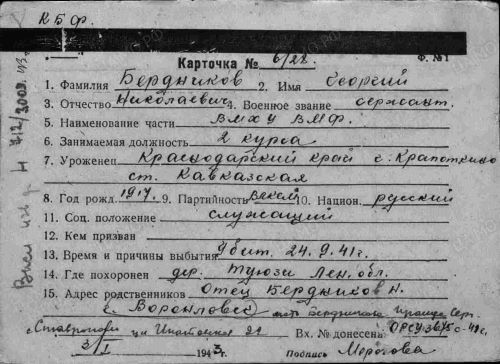 КБФ.
Ф. №1
Карточка № 6/22.
1. Фамилия Бердников 2. Имя Георгий
3. Отчество Николаевич 4. Военное звание сержант.
5. Наименование части ВМХУ ВМФ.
6. Занимаемая должность 2 курса
7. Уроженец Краснодарский край с. Крапоткино
ст. Кавказская
8. Год рожд. 1917. 9. Партийность 10. Национ. русский
11. Соц. положение служащий
12. Кем призван
13. Время и причины выбытия Убит. 24.9.41г.
14. Где похоронен дер. Туюзи Лен. обл.
15. Адрес родственников Отец Бердников Н.
г. Ворошиловск
Вх. № донесен.
3/I 1943г. Подпись Морозова